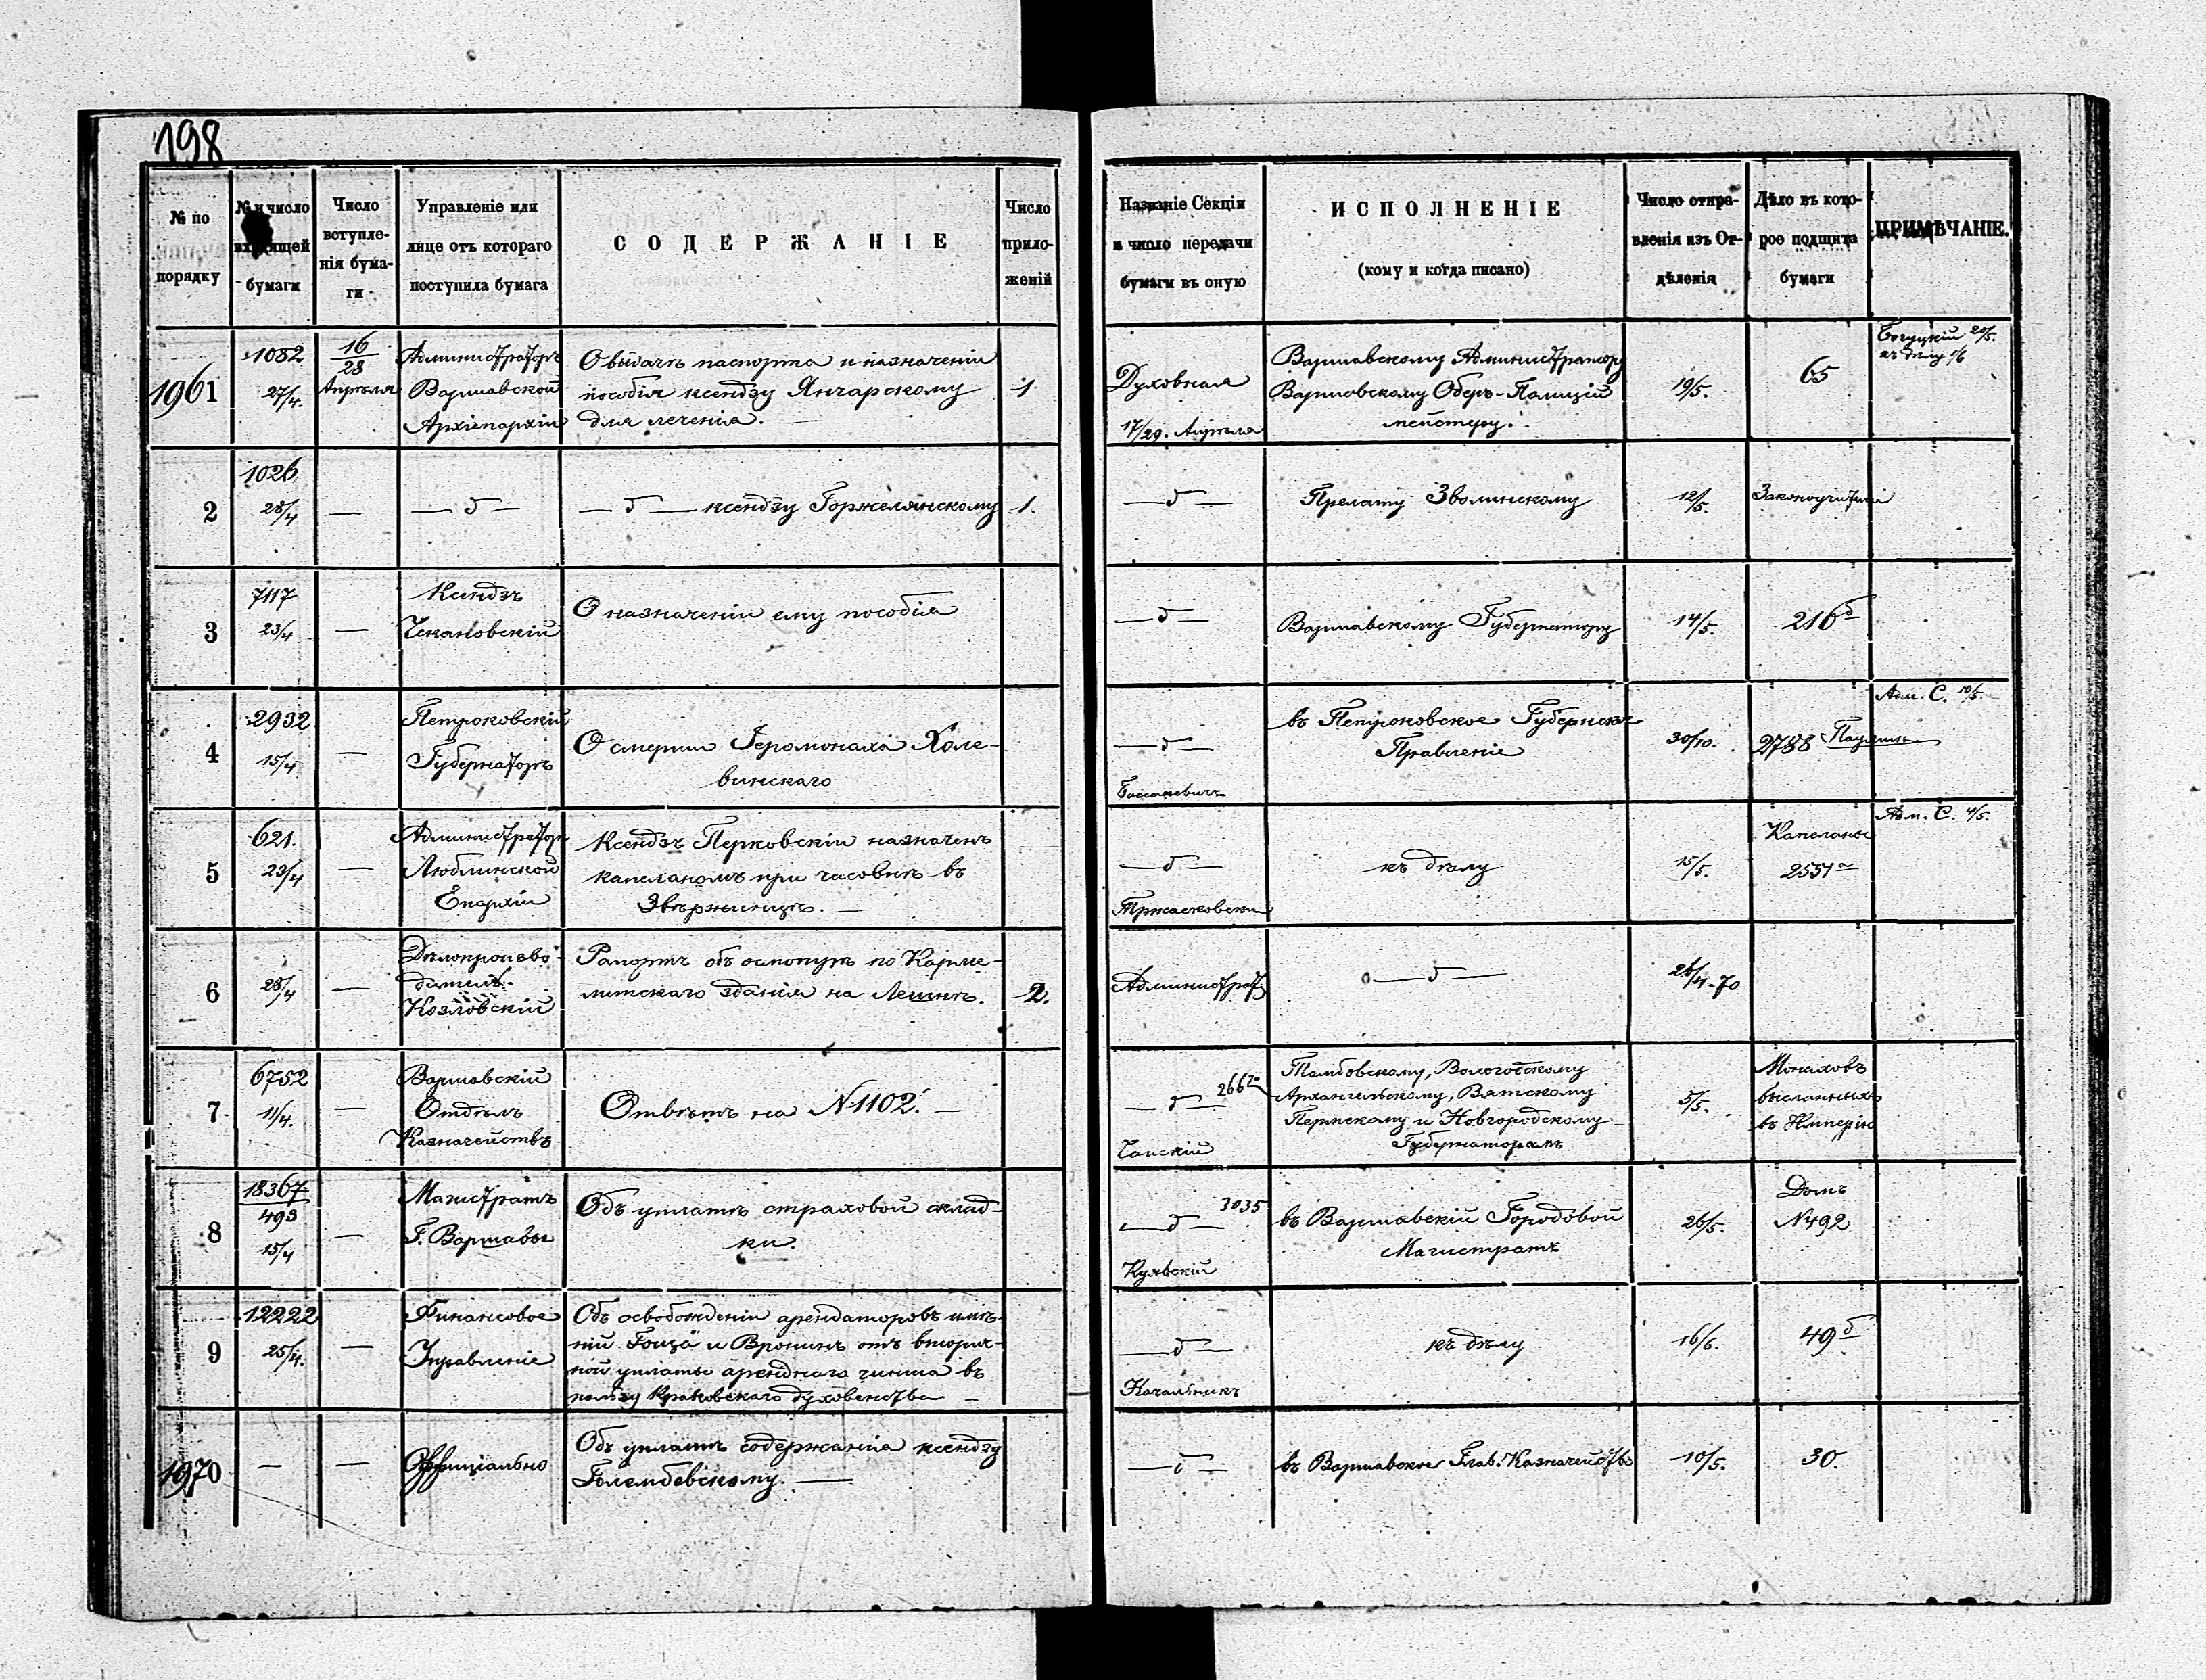 198
№ по порядку
№ и число входящей бумаги
Число вступле-нія бума-ги
Управленіе или лице отъ котораго поступила бумага
СОДЕРЖАНІЕ
Число прило-женій
Названіе Секціи и число передачи бумаги въ оную
ИСПОЛНЕНІЕ
(кому и когда писано)
Число отпра-вленія изъ От-дѣленія
Дѣло въ кото-рое подшита бумаги
ПРИМѢЧАНІЕ.
1961
1082
27/4.
16/28
Апрѣля
Администраторъ
Варшавской
Архіепархіи
О выдачѣ паспорта и назначеніи
пособія ксендзу Янчарскому
для леченія. —
1
Духовная
17/29. Апрѣля
Варшавскому Администратору
Варшавскому Оберъ-Полицій
мейстеру.
19/5.
65
20/5.
къ дѣлу 1/6
2
1026
28/4
—
— д —
— д — ксендзу Горжелянскому
1.
— д —
Прелату Зволинскому
12/5.
Законоучители
3
7117
23/4
—
Ксендзъ
Чекановскій
О назначеніи ему пособія
— д —
Варшавскому Губернатору
14/5.
216 б
4
2932
15/4
—
Петроковскій
Губернаторъ
О смерти Іеромонаха Холе-
винскаго
— д —
въ Петроковское Губернск
Правленіе
30/10.
2788
Адм. С. 10/5
5
621.
23/4
—
Администраторъ
Люблинской
Епархіи
Ксендзъ Перковскій назначенъ
капеланомъ при часовнѣ въ
Звѣржинцѣ. —
— д —
къ дѣлу
15/5.
Капеланы
2551 а
Адм. С. 4/5.
6
28/4
—
Дѣлопроизво-
дитель
Козловскій
Рапортъ объ осмотрѣ по Карме-
литскаго зданія на Лешнѣ.
2.
Администрат
— д —
26/4-70
7
6752
11/4.
—
Варшавскій
Отдѣлъ
Казначействъ
Отвѣтъ на N1102. —
— д —
Чапскій
Тамбовскому, Вологотскому
Архангельскому, Вятскому
Пермскому и Новгородскому
Губернаторамъ
5/5.
Монаховъ
высланныхъ
въ Имперію
8
18367
493
15/4
—
Магистратъ
Г. Варшавы
Объ уплатѣ страховой склад-
ки.
3035
— д —
Куявскій
въ Варшавскій Городовой
Магистратъ
26/5.
Домъ
N492
9
12222
25/4.
—
Финансовое
Управленіе
Объ освобожденіи арендаторовъ имѣ-
ній и Вронинъ отъ вторич-
ной уплаты аренднаго чинша въ
пользу Краковскаго духовенства —
— д —
Начальникъ
къ дѣлу
16/6.
49 б
1970
—
—
Оффиціально
Объ уплатѣ содержанія ксендзу
Голембевскому. —
— д —
въ Варшавское Глав. Казначейство
10/5.
30.